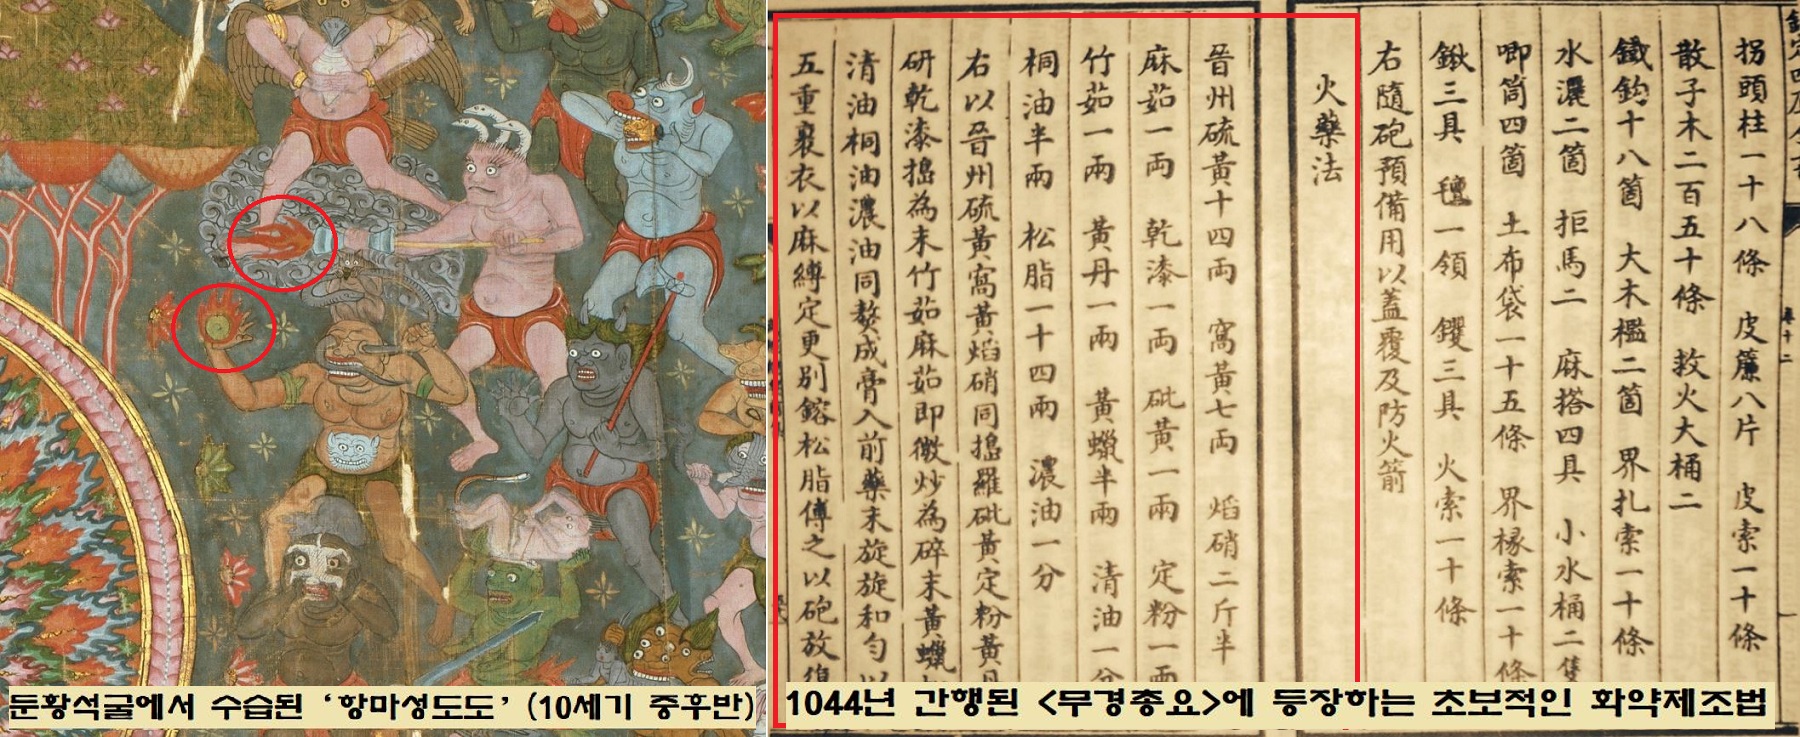 둔황석굴에서 수습된 ‘항마성도도’ (10세기 중후반)
拐頭柱一十八條 皮簾八片 皮索一十條
散子木二百五十條 救火大桶二
鐵鈎十八箇 大木檻二箇 界扎索一十條
水灑二箇 拒馬二 麻搭四具 小水桶二隻
唧筒四箇 土布袋一十五條 界椽索一十條
鍬三具 氊一領 钁三具 火索一十條
右隨砲預備用以蓋覆及防火箭
火藥法
晉州硫黃十四兩 窩黃七兩 焰硝二斤半
麻茹一兩 乾漆一兩 砒黃一兩 定粉一兩
竹茹一兩 黃丹一兩 黃蠟半兩 清油一分
桐油半兩 松脂一十四兩 濃油一分
右以晉州硫黃窩黃焰硝同搗羅砒黃定粉黃丹
研乾漆搗為末竹茹麻茹即微炒為碎末黃蠟
清油桐油濃油同熬成膏入前藥末旋旋和勻以
五重裹衣以麻縛定更別鎔松脂傅之以砲放復
1044년 간행된 <무경총요>에 등장하는 초보적인 화약제조법